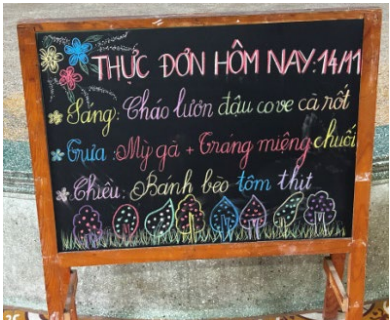 THỰC ĐƠN HÔM NAY: 14/11
Sáng: Cháo lươn đậu cove cà rốt
Trưa: Mỳ gà + Tráng miệng chuối
Chiều: Bánh bèo tôm thịt